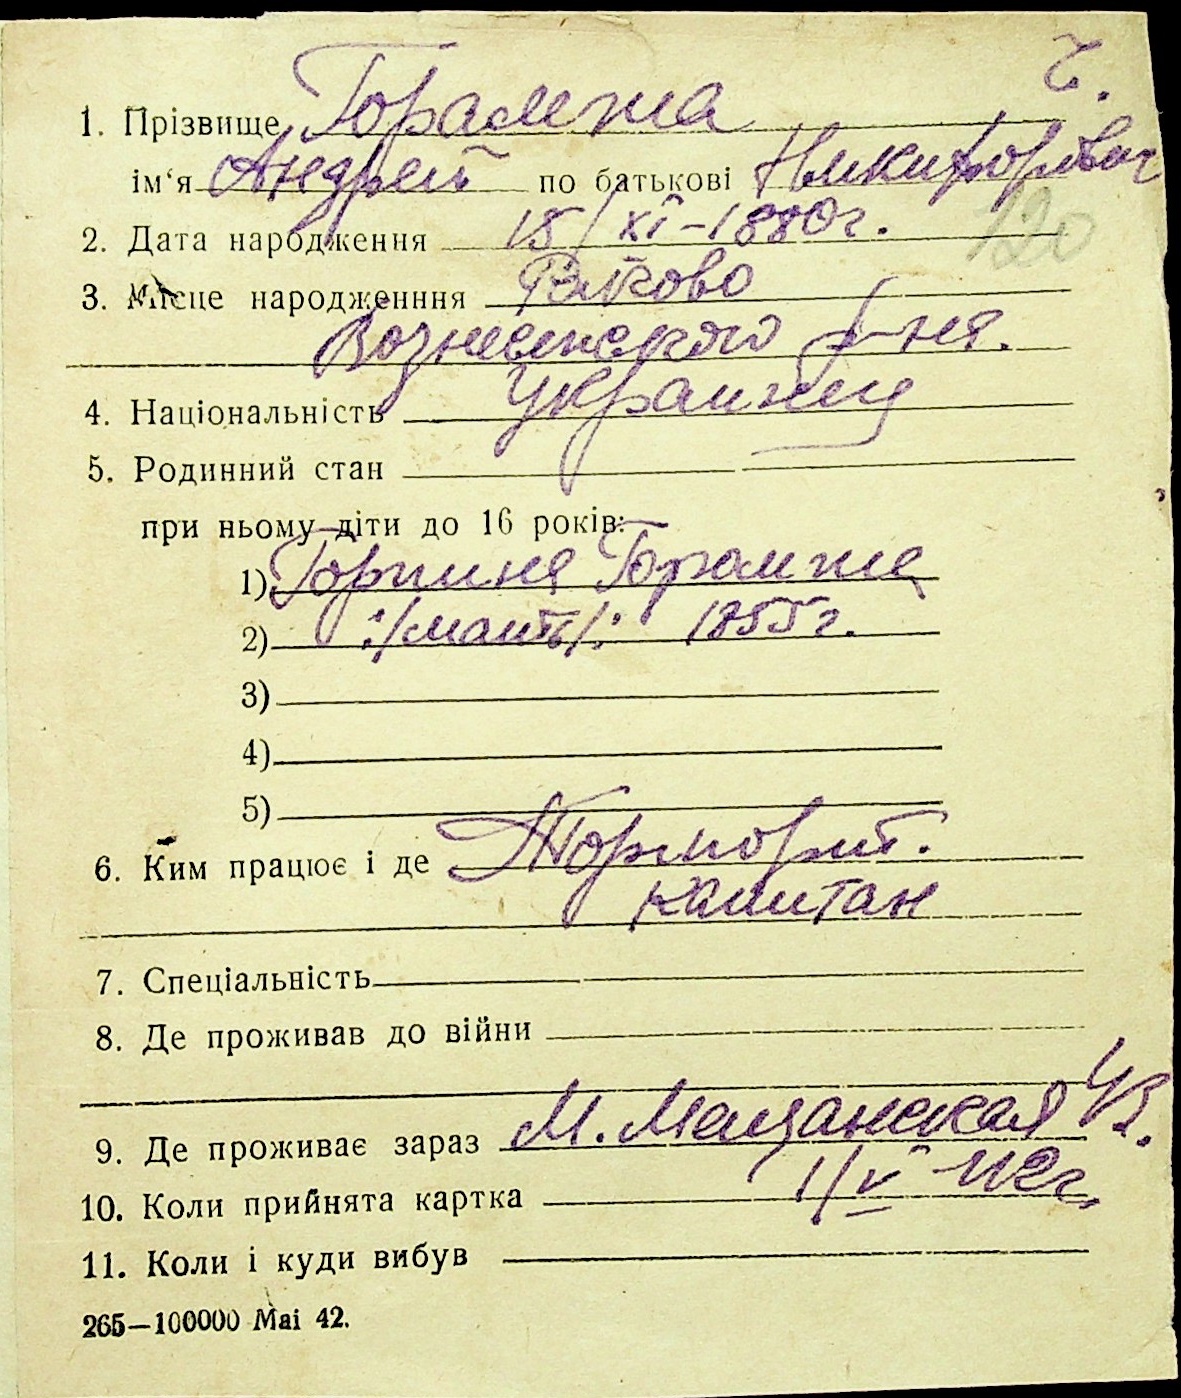 Ч.
1. Прізвище Горамжа
ім‘я Андрей по батькові Никифорович
2. Дата народження 15/XI-1880г.
120
3. Місце народженння Раково
Вознесенского р-на.
4. Національність украинец
5. Родинний стан
при ньому діти до 16 років:
1) Горпина Горамжа
2) :/мать/: 1855г.
3)
4)
5)
6. Ким працює і де
капитан
7. Спеціальність
8. Де проживав до війни
9. Де проживає зараз М. Мещанская 43.
10. Коли прийнята картка 1/V 42г.
11. Коли і куди вибув
265—100000 Mai 42.